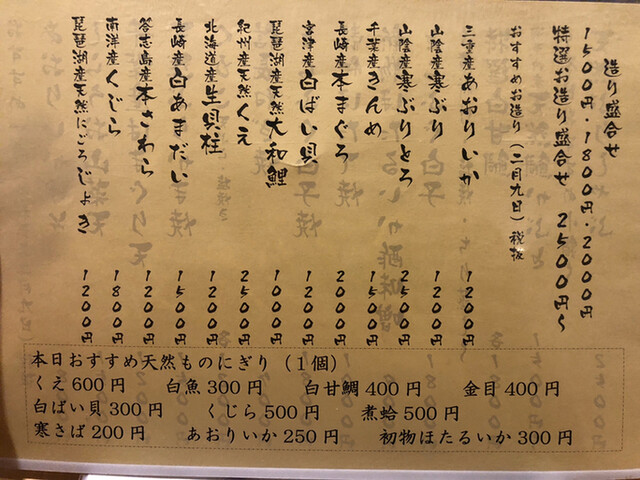 造り盛合せ
1500円・1800円・2000円
特選お造り盛合せ 2500円〜
おすすめお造り（二月九日）税抜
三重産あおりいか 1200円
山陰産寒ぶり 1200円
山陰産寒ぶりとろ 2500円
千葉産きんめ 1500円
長崎産本まぐろ 2000円
宮津産白ばい貝 1200円
琵琶湖産天然大和鯉 1000円
紀州産天然くえ 2500円
北海道産生貝柱 1200円
長崎産白あまだい 1500円
答志島産本さわら 1200円
南洋産くじら 1800円
琵琶湖産天然にごろじょき 1200円
本日おすすめ天然ものにぎり（1個）
くえ600円 白魚300円 白甘鯛400円 金目400円
白ばい貝300円 くじら500円 煮蛤500円
寒さば200円 あおりいか250円 初物ほたるいか300円